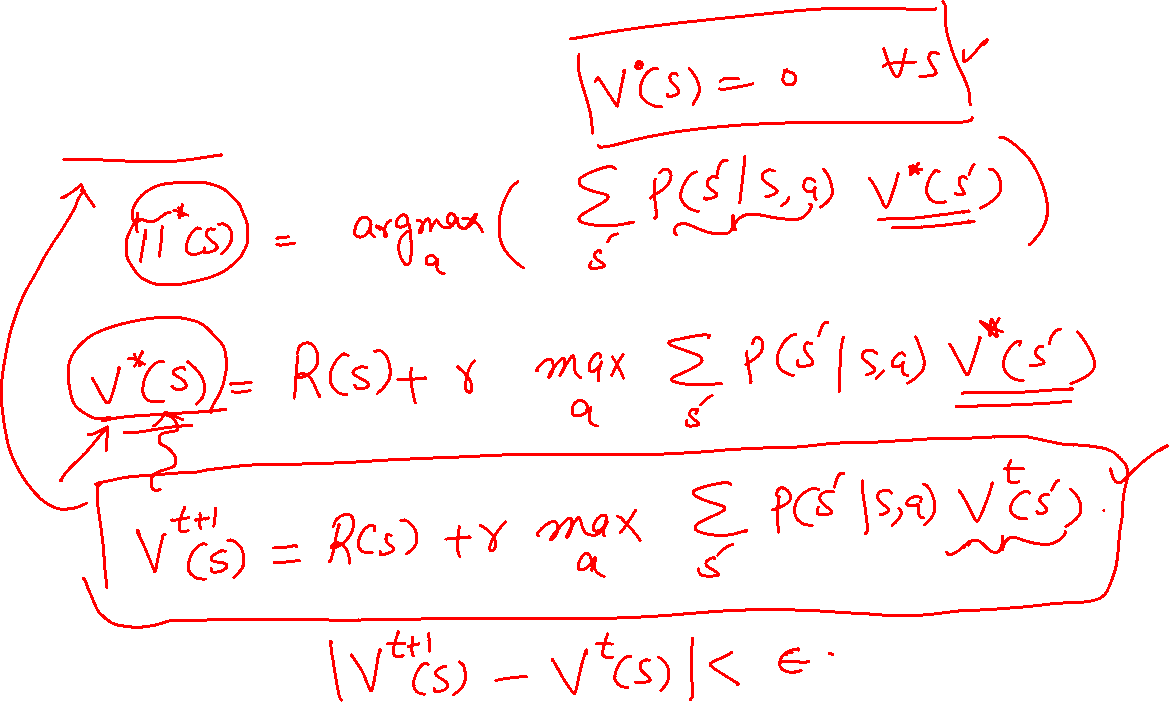 V⁰(s) = 0 ∀s ✓
π*(s) = argmax_a ( Σ_s' P(s'|s,a) V*(s') )
V*(s) = R(s) + γ max_a Σ_s' P(s'|s,a) V*(s')
V^{t+1}(s) = R(s) + γ max_a Σ_s' P(s'|s,a) V^t(s').
|V^{t+1}(s) - V^t(s)| < ϵ.